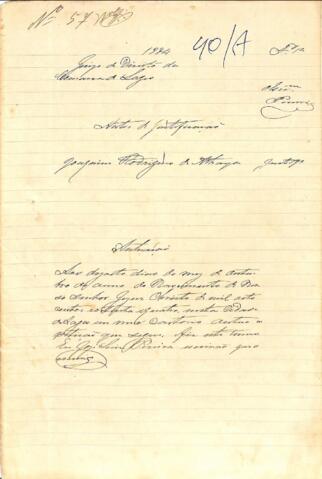 Nº 57
1884
40/A
Juizo de Direito da
Comarca de Lages
Escrivão
Pereira
Autos de Justificação
Joaquim Rodrigues de Athayde
Justifte
Autuação
dezoito dias do mez de
bro do anno do Nascimento de Nos
so Senhor Jesus Christo de mil oito
centos e oitenta e quatro, nesta Cidade
de Lages em meu Cartorio autuo a
petição que segue, fiz este termo
Eu José Luis Pereira escrivão que